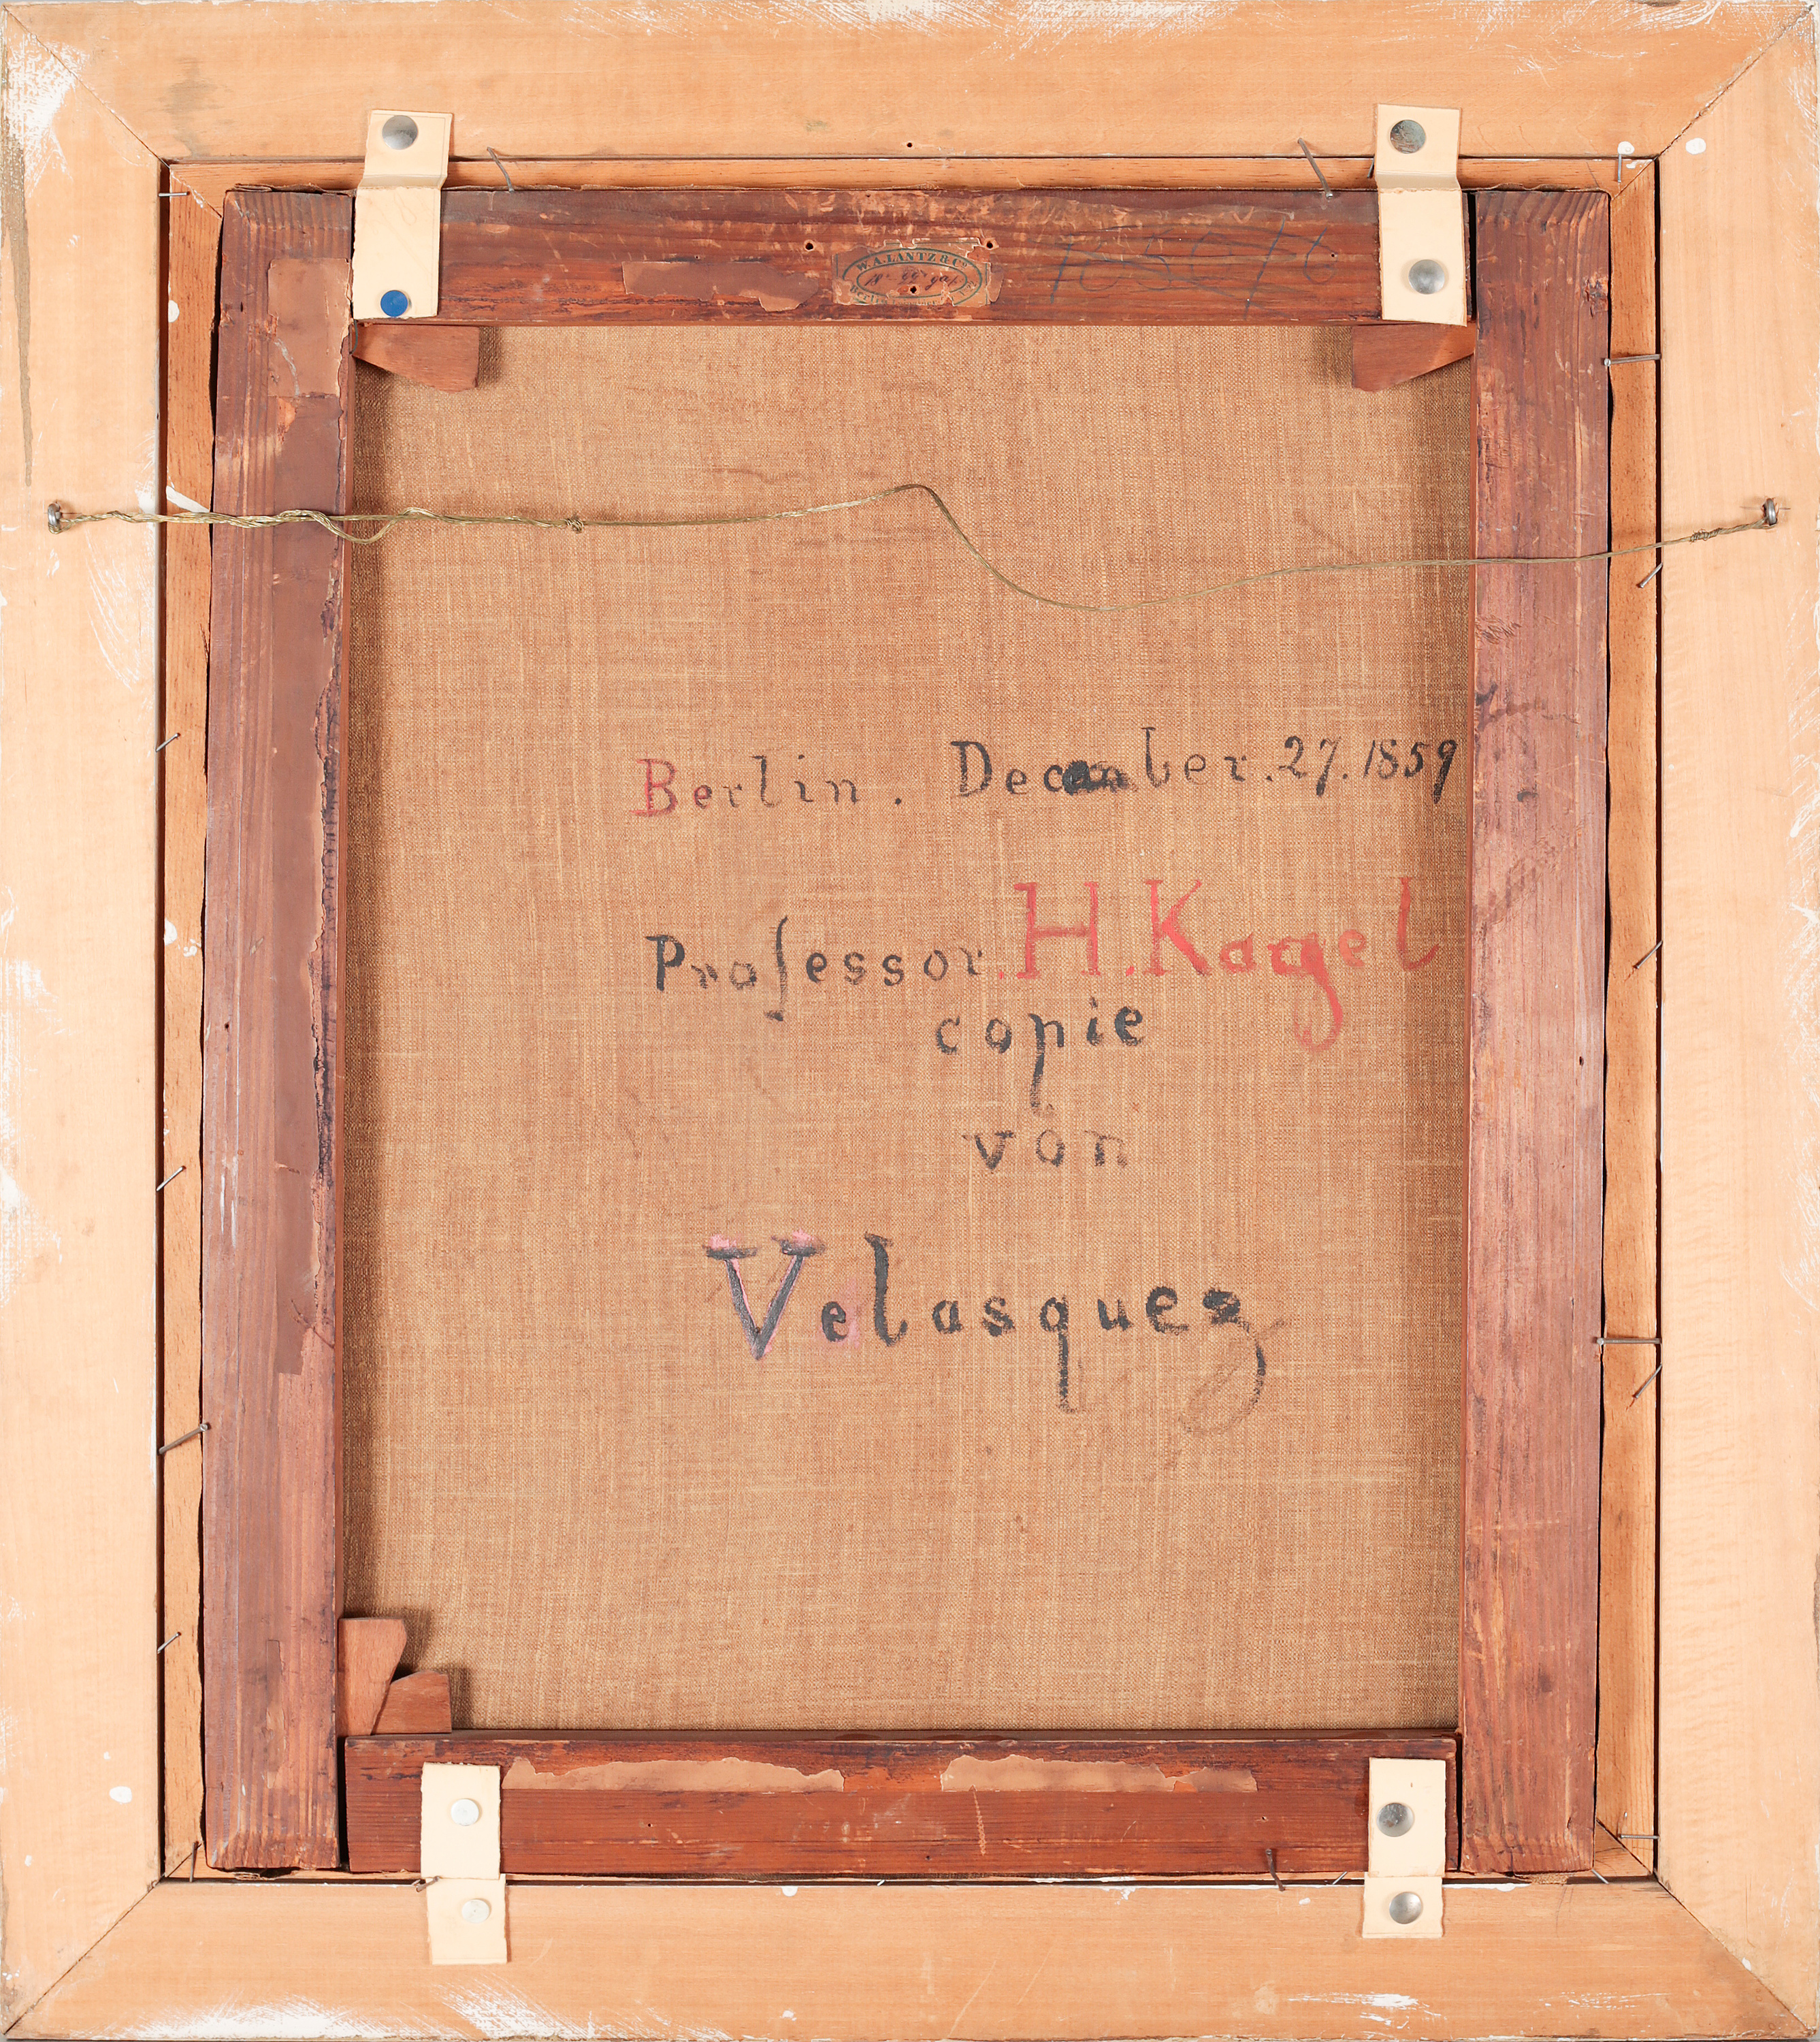 W. A. LANTZ & Co
Berlin. December. 27. 1859
Professor. H. Kargel
copie
von
Velasquez